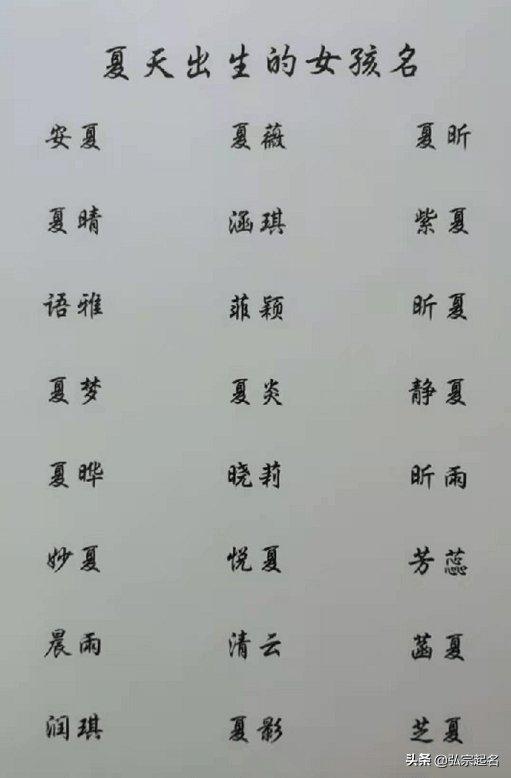 夏天出生的女孩名
安夏 夏薇 夏昕
夏晴 涵琪 紫夏
语雅 菲颖 昕夏
夏梦 夏炎 静夏
夏晔 晓莉 昕雨
妙夏 悦夏 芳蕊
晨雨 清云 菡夏
润琪 夏影 芝夏
头条 @弘宗起名